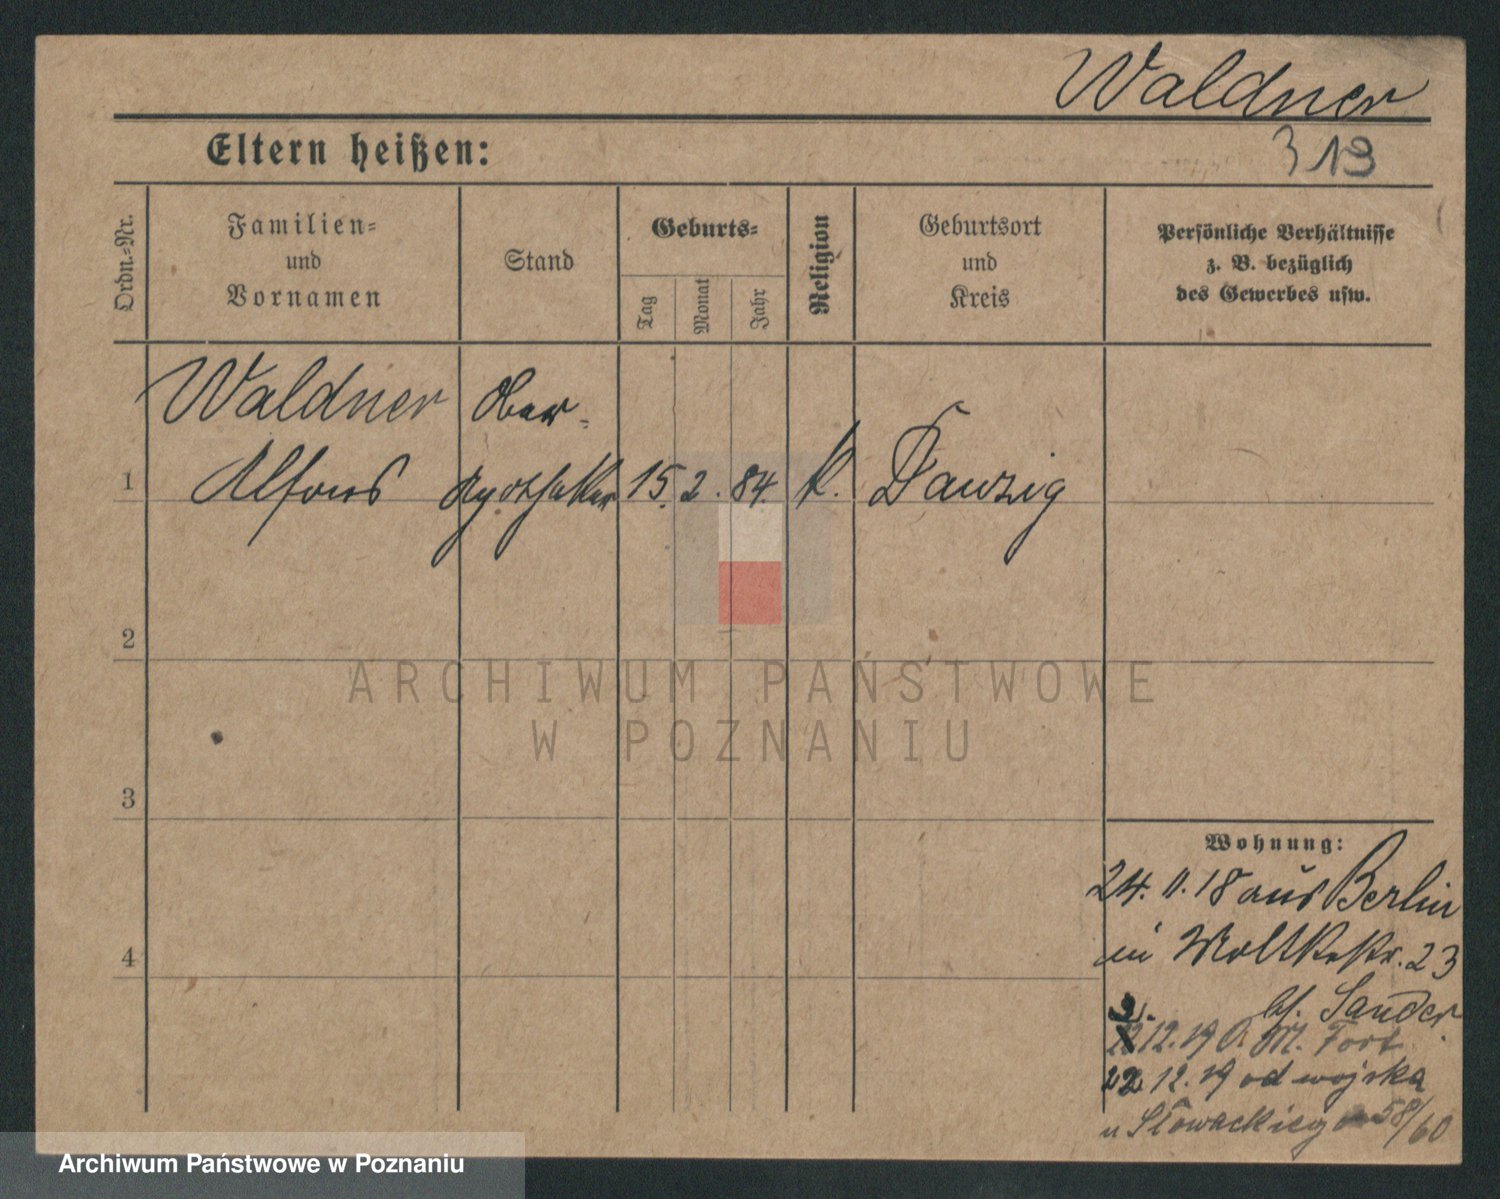 Waldner
319
Eltern heißen:
Ordn.-Nr.
Familien-
und
Vornamen
Stand
Geburts-
Tag
Monat
Jahr
Religion
Geburtsort
und
Kreis
Persönliche Verhältnisse
z. B. bezüglich
des Gewerbes usw.
Waldner Ober-
1 Alfons Apotheker 15. 2. 84. k. Danzig
2
3
4
Wohnung:
24. 11. 18 aus Berlin
in Moltkestr. 23
bf. Sander
12.19 M. Fort
22 12. 19 od wojska
u Słowackiego 58/60
ARCHIWUM PAŃSTWOWE
W POZNANIU
Archiwum Państwowe w Poznaniu